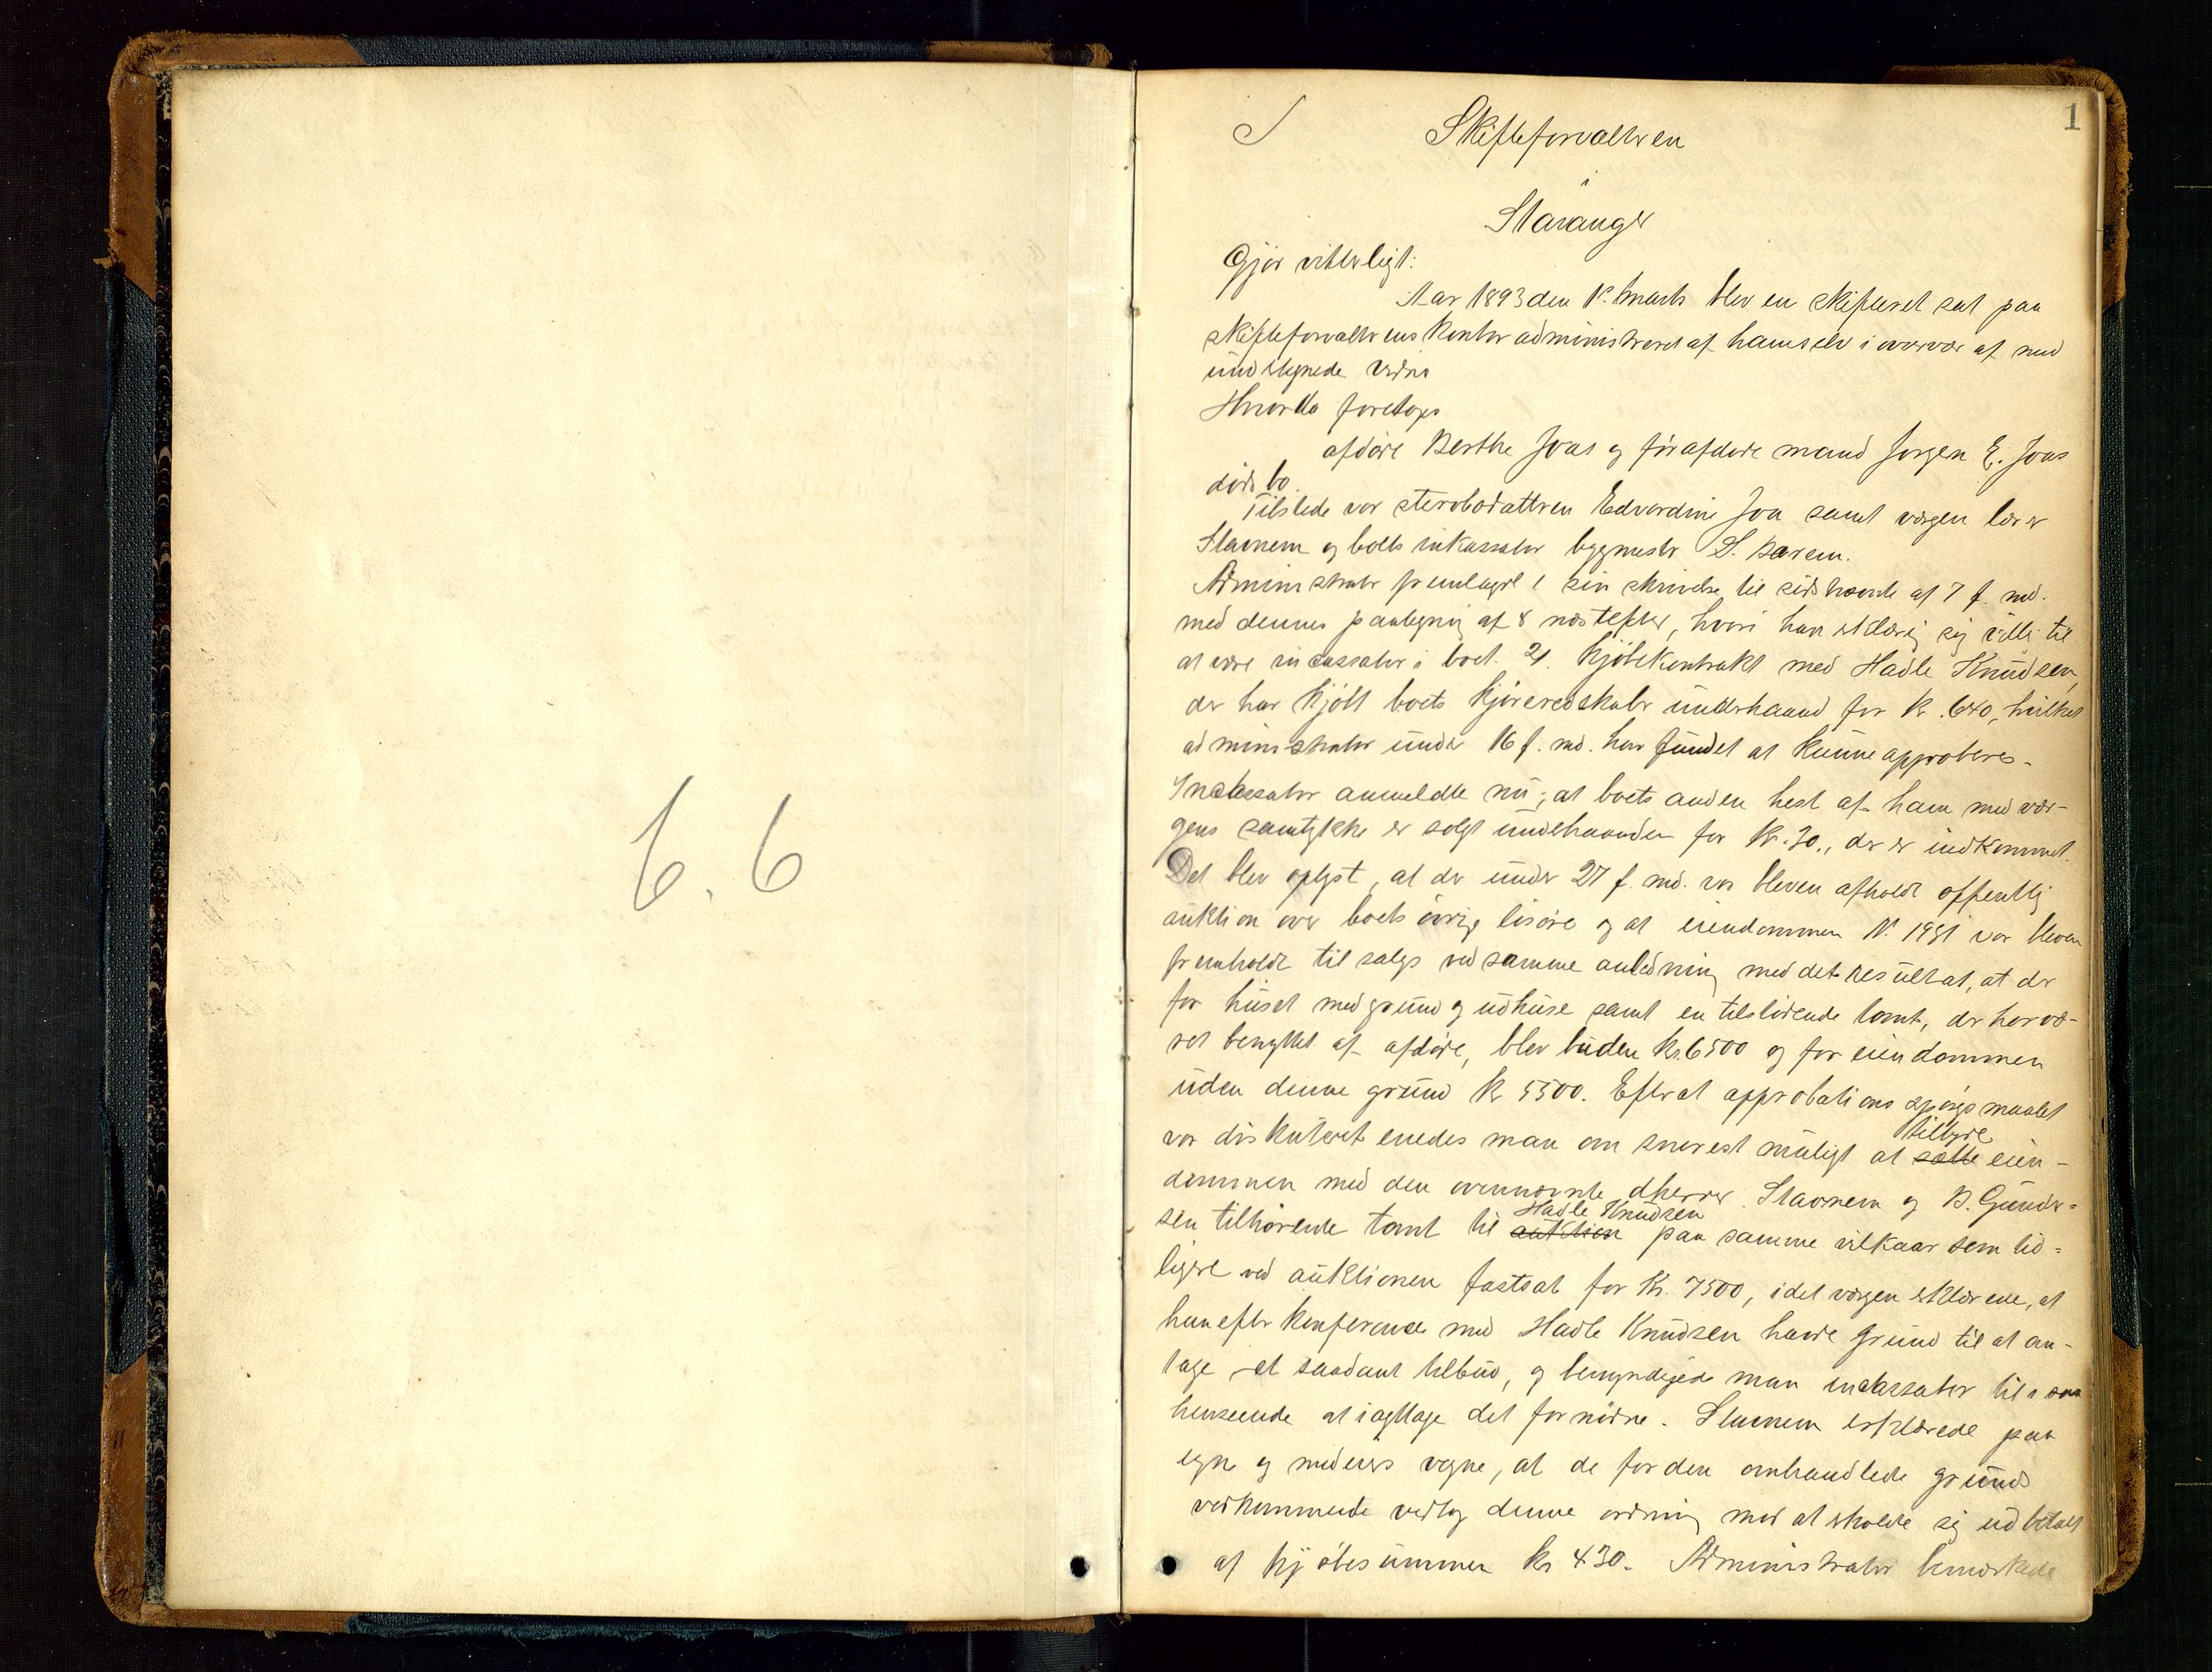 6.6
1
Skifteforvalteren
i
Stavanger
Gjør vitterligt:
Aar 1893 den 1. marts blev en skifteret sat paa
skifteforvalterens kontor administreret af ham selv i overvær af med
undertegnede vidne
Hvorda foretoges
afdøre Berthe Joas og før afdøre mand Jørgen E. Joas
døds bo.
Tilstede var sterbodatteren Edvardine Joa samt værgen lærer
Stavnem og boets inkassator bygmester S. Barem.
Administrator fremlagde 1 sin skrivelse til sidstnævnte af 7 f. md.
med dennes paategning af 8 næstefter, hvori han erklærer sig villig til
at være incassator i boet. 2. Kjøbekontrakt med Hadle Knudsen,
der har kjøbt boets kjøreredskaber underhaand for kr. 640, hvilket
administrator under 16 f. md. har fundet at kunne approberes.
Incassator anmeldte nu, at boets anden hest af ham med vær-
gens samtykke er solgt underhaanden for kr. 30., der er indkommet.
Det blev oplyst, at der under 27 f. md. var bleven afholdt offentlig
auktion over boets øvrige løsøre og at eiendommen N. 1981 var bleven
fremholdt til salgs ved samme anledning med det resultat, at der
for huset med grund og udhuse samt en tilstødende tomt, der har væ-
ret benyttet af afdøre, blev buden kr. 6500 og for eiendommen
uden denne grund kr 5500. Efter at approbations spørgsmaalet
var diskuteret enedes man om snarest muligt at sætte tilbyde eien-
dommen med den ovennævnte dherrer Stavnem og B. Gunder-
sen tilhørende tomt til auktion Hadle Knudsen paa samme vilkaar som tid-
ligere ved auktionen fastsat for kr. 7500, idet værgen erklærede, at
han efter konference med Hadle Knudsen havde grund til at an-
tage et saadant tilbud, og bemyndigede man incassator til i saa
henseende at iagttage det fornødne. Stavnem erklærede paa
egne og medeiers vegne, at de for den omhandlede grunds
vedkommende vedtog denne ordning mod at erholde sig udbetalt
af kjøbesummen kr 430. Administrator bemærkede